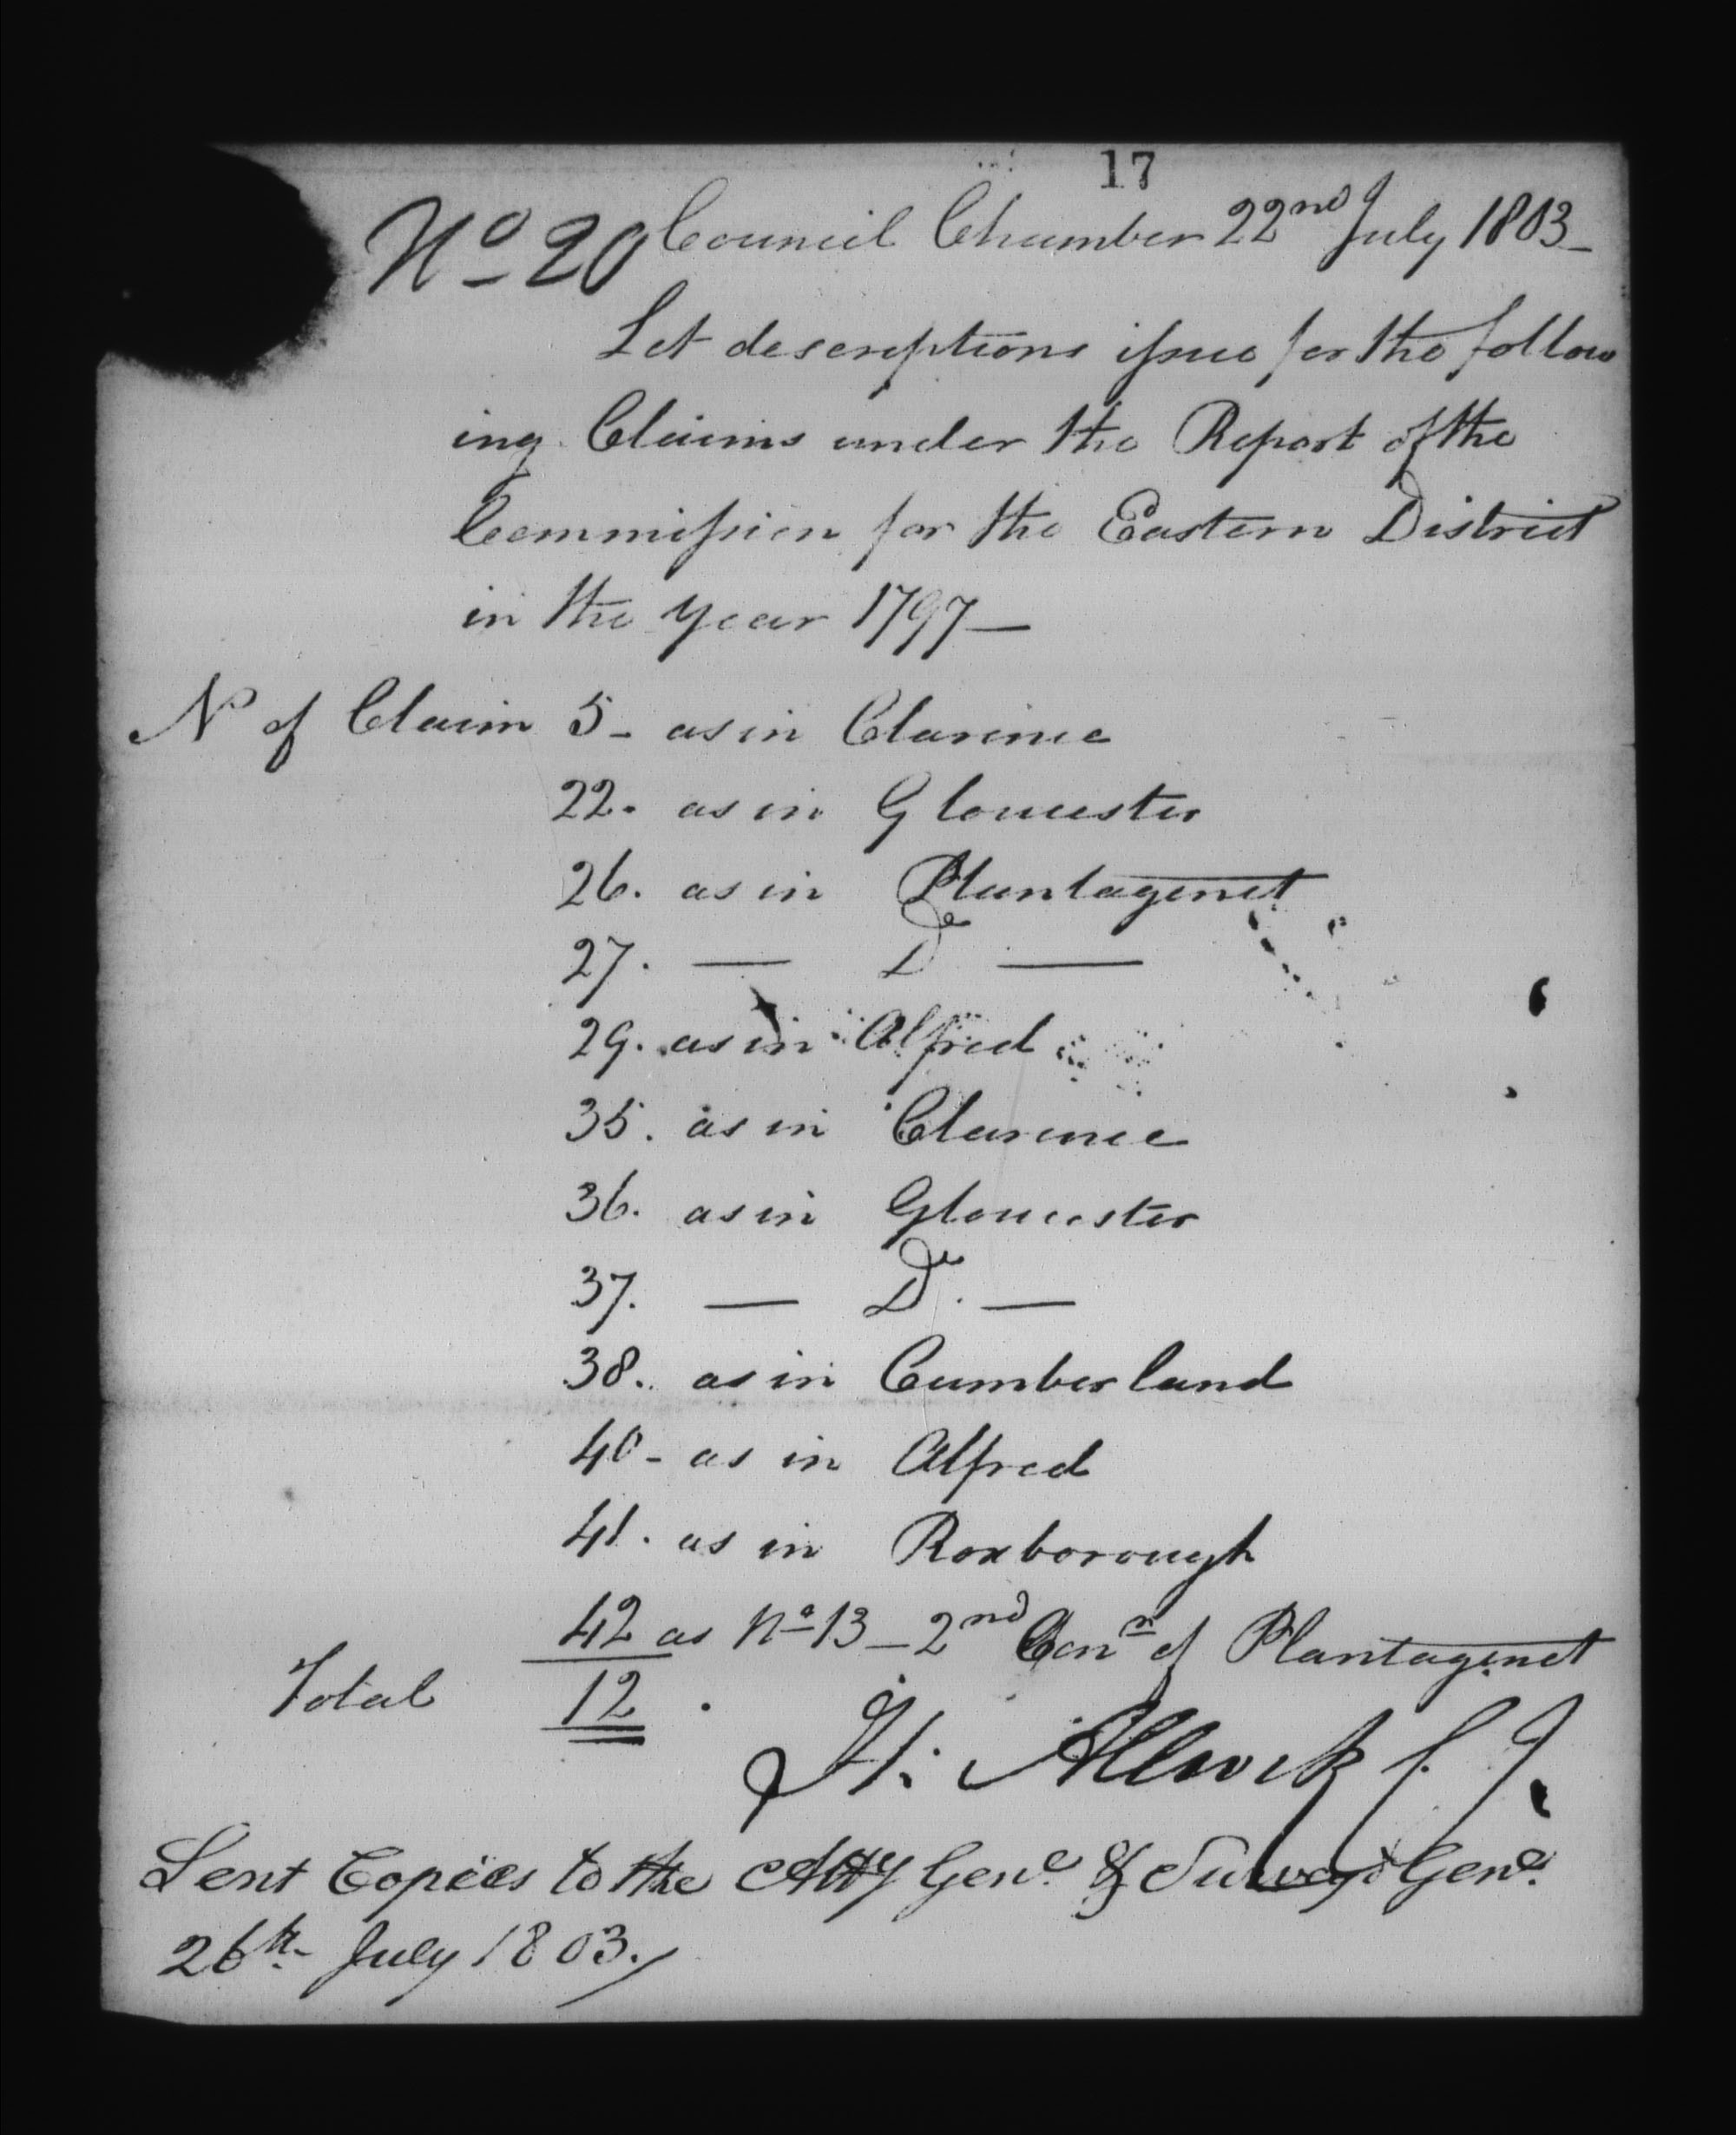 17
No 20 Council Chamber 22nd July 1803_
Let descriptions issue for the follow
ing Claims under the Report of the
Commission for the Eastern District
in the Year 1797 —
No of Claim 5 - as in Clarence
22. as in Gloucester
26. as in Plantagenet
27. — Do —
29. as in Alfred
35. as in Clarence
36. as in Gloucester
37. — Do. —
38. as in Cumberland
40 - as in Alfred
41. as in Roxborough
42 as No 13 _ 2nd Conn of Plantagenet
Total 12 .
H: Allcock C. J.
Sent Copies to the Atty Genl. & Survey'r Genl.
26th July 1803.